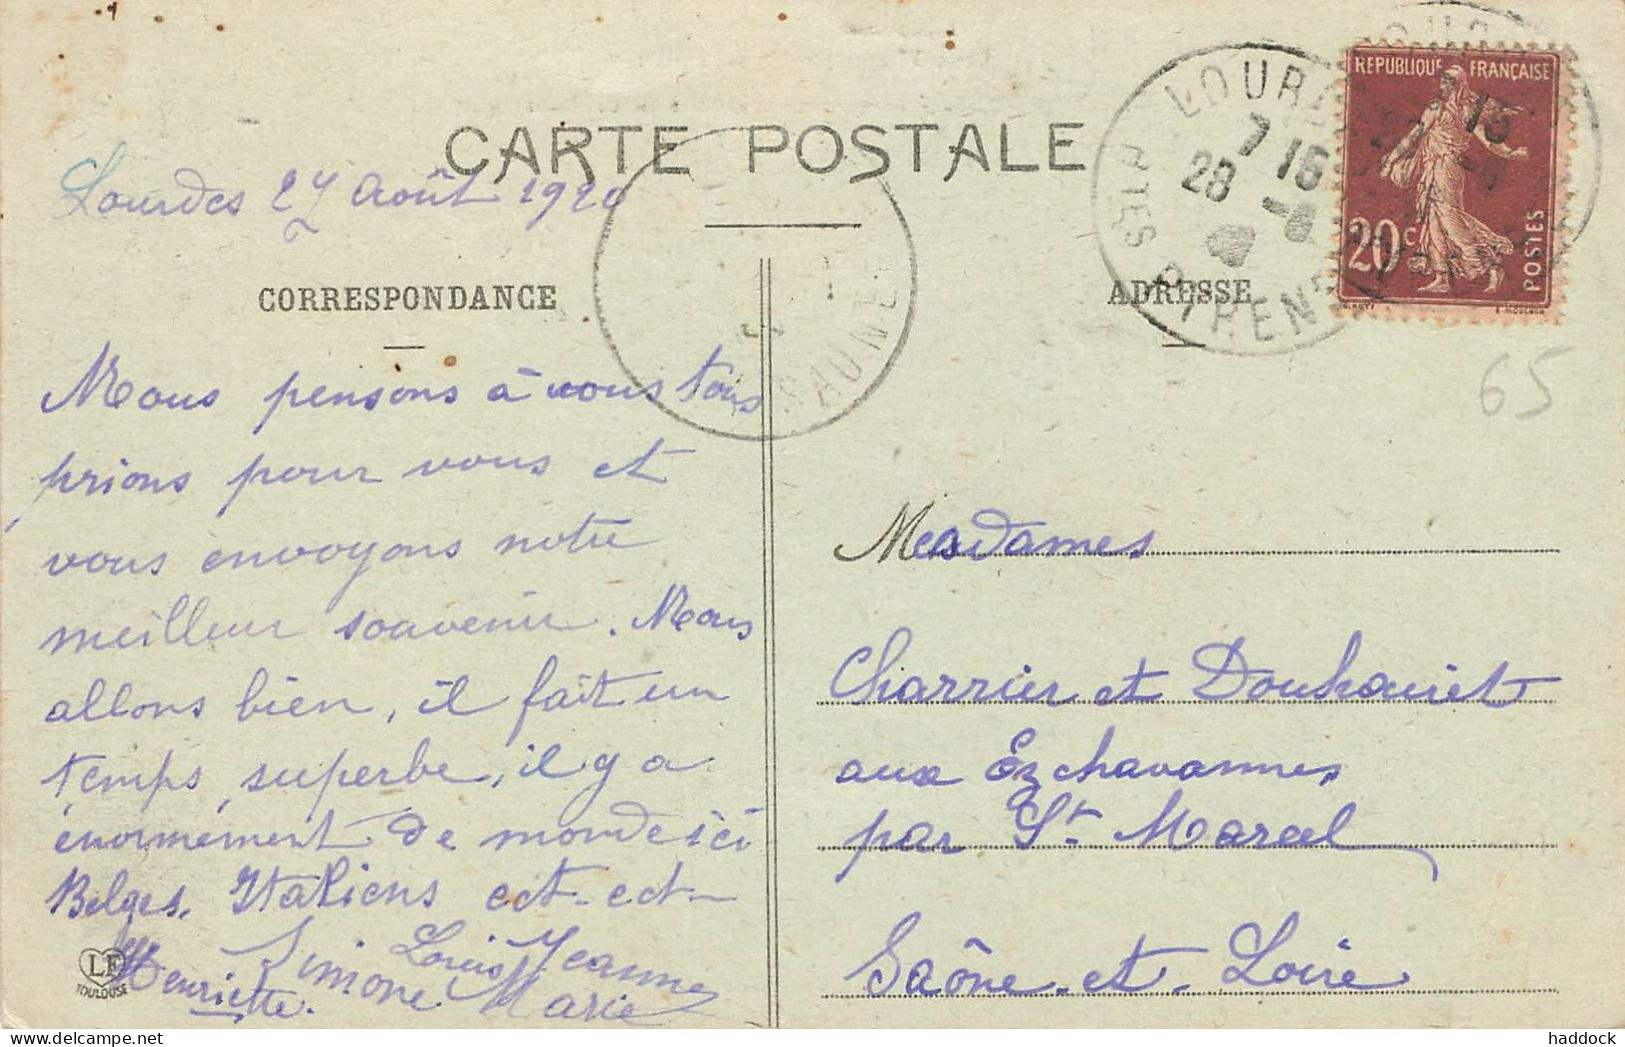 CARTE POSTALE
Lourdes 27 Août 1920
CORRESPONDANCE
Nous pensons à vous tous
prions pour vous et
vous envoyons notre
meilleur souvenir. Nous
allons bien, il fait un
temps superbe, il y a
énormément de monde ici
Belges, Italiens ect-ect-
Henriette. Simone Louis Jeanne
Marie
LF
TOULOUSE
ADRESSE
LOURDES
7 16
28 -8
PYRENEES
REPUBLIQUE FRANÇAISE
20c
POSTES
65
Mesdames
Charrier et
aux Echavannes
par St Marcel
Saône-et-Loire
haddock
delcampe.net